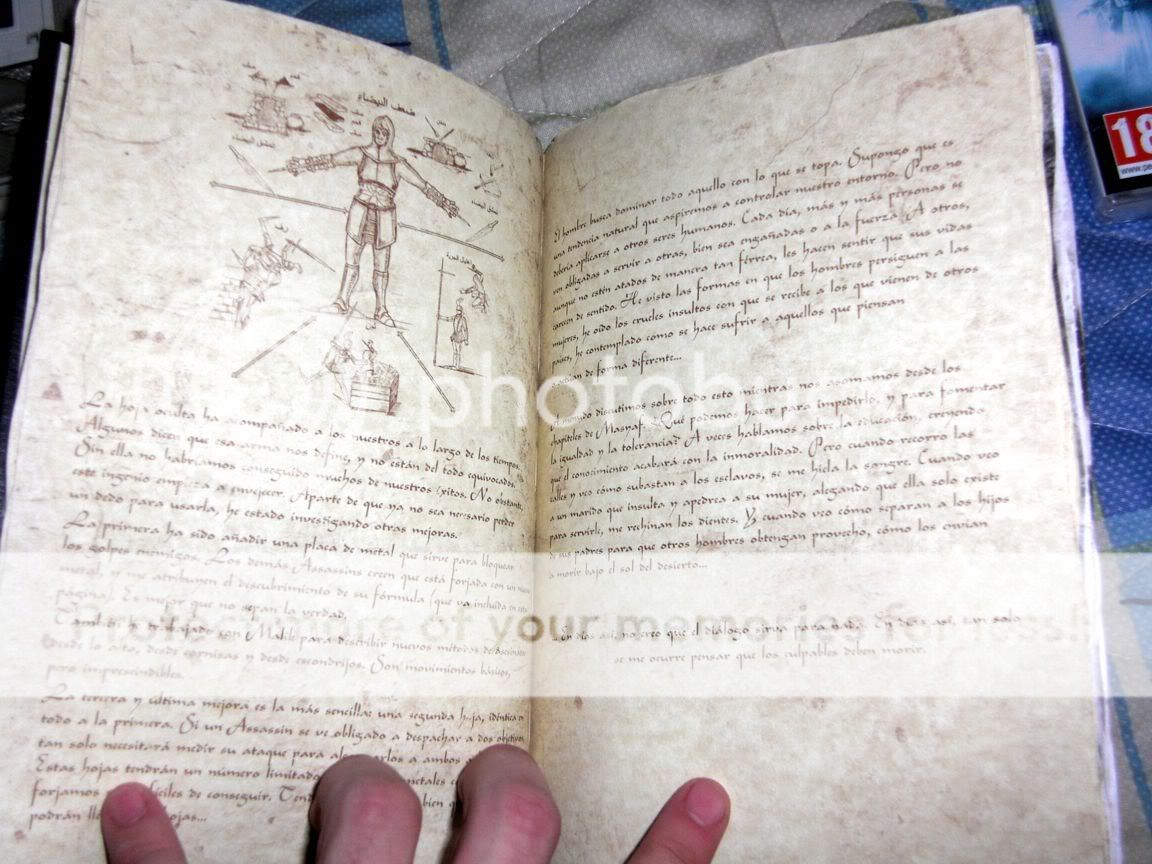 La hoja oculta ha acompañado a los nuestros a lo largo de los tiempos.
Algunos dicen que esa arma nos define, y no están del todo equivocados.
Sin ella no habríamos conseguido muchos de nuestros éxitos. No obstante,
este ingenio empieza a envejecer. Aparte de que ya no sea necesario perder
un dedo para usarla, he estado investigando otras mejoras.
La primera ha sido añadir una placa de metal que sirve para bloquear
los golpes enemigos. Los demás Assassins creen que está forjada con un nuevo
metal, y me atribuyen el descubrimiento de su fórmula (que va incluida en esta
página). Es mejor que no sepan la verdad.
También he trabajado con Malik para describir nuevos métodos de asesinato:
desde lo alto, desde cornisas y desde escondrijos. Son movimientos básicos,
pero imprescindibles.
La tercera y última mejora es la más sencilla: una segunda hoja, idéntica en
todo a la primera. Si un Assassin se ve obligado a despachar a dos objetivos,
tan solo necesitará medir su ataque para a ambos
Estas hojas tendrán un número limitado metales
forjamos difíciles de conseguir. bien
podrán hojas...
El hombre busca dominar todo aquello con lo que se topa. Supongo que es
una tendencia natural que aspiremos a controlar nuestro entorno. Pero no
debería aplicarse a otros seres humanos. Cada día, más y más personas se
ven obligadas a servir a otras, bien sea engañadas o a la fuerza. A otros,
aunque no estén atados de manera tan férrea, les hacen sentir que sus vidas
carecen de sentido. He visto las formas en que los hombres persiguen a las
mujeres, he oído los crueles insultos con que se recibe a los que vienen de otros
países, he contemplado cómo se hace sufrir a aquellos que piensan
o actúan de forma diferente...
A menudo discutimos sobre todo esto mientras nos asomamos desde los
chapiteles de Masyaf. ¿Qué podemos hacer para impedirlo, y para fomentar
la igualdad y la tolerancia? A veces hablamos sobre la educación, creyendo
que el conocimiento acabará con la inmoralidad. Pero cuando recorro las
calles y veo cómo subastan a los esclavos, se me hiela la sangre. Cuando veo
a un marido que insulta y apedrea a su mujer, alegando que ella solo existe
para servirle, me rechinan los dientes. Y cuando veo cómo separan a los hijos
de sus padres para que otros hombres obtengan provecho, cómo los envían
a morir bajo el sol del desierto...
...En días así, no creo que el diálogo sirva para nada. En días así, tan solo
se me ocurre pensar que los culpables deben morir.
18
photobucket
Protect more of your memories for less!